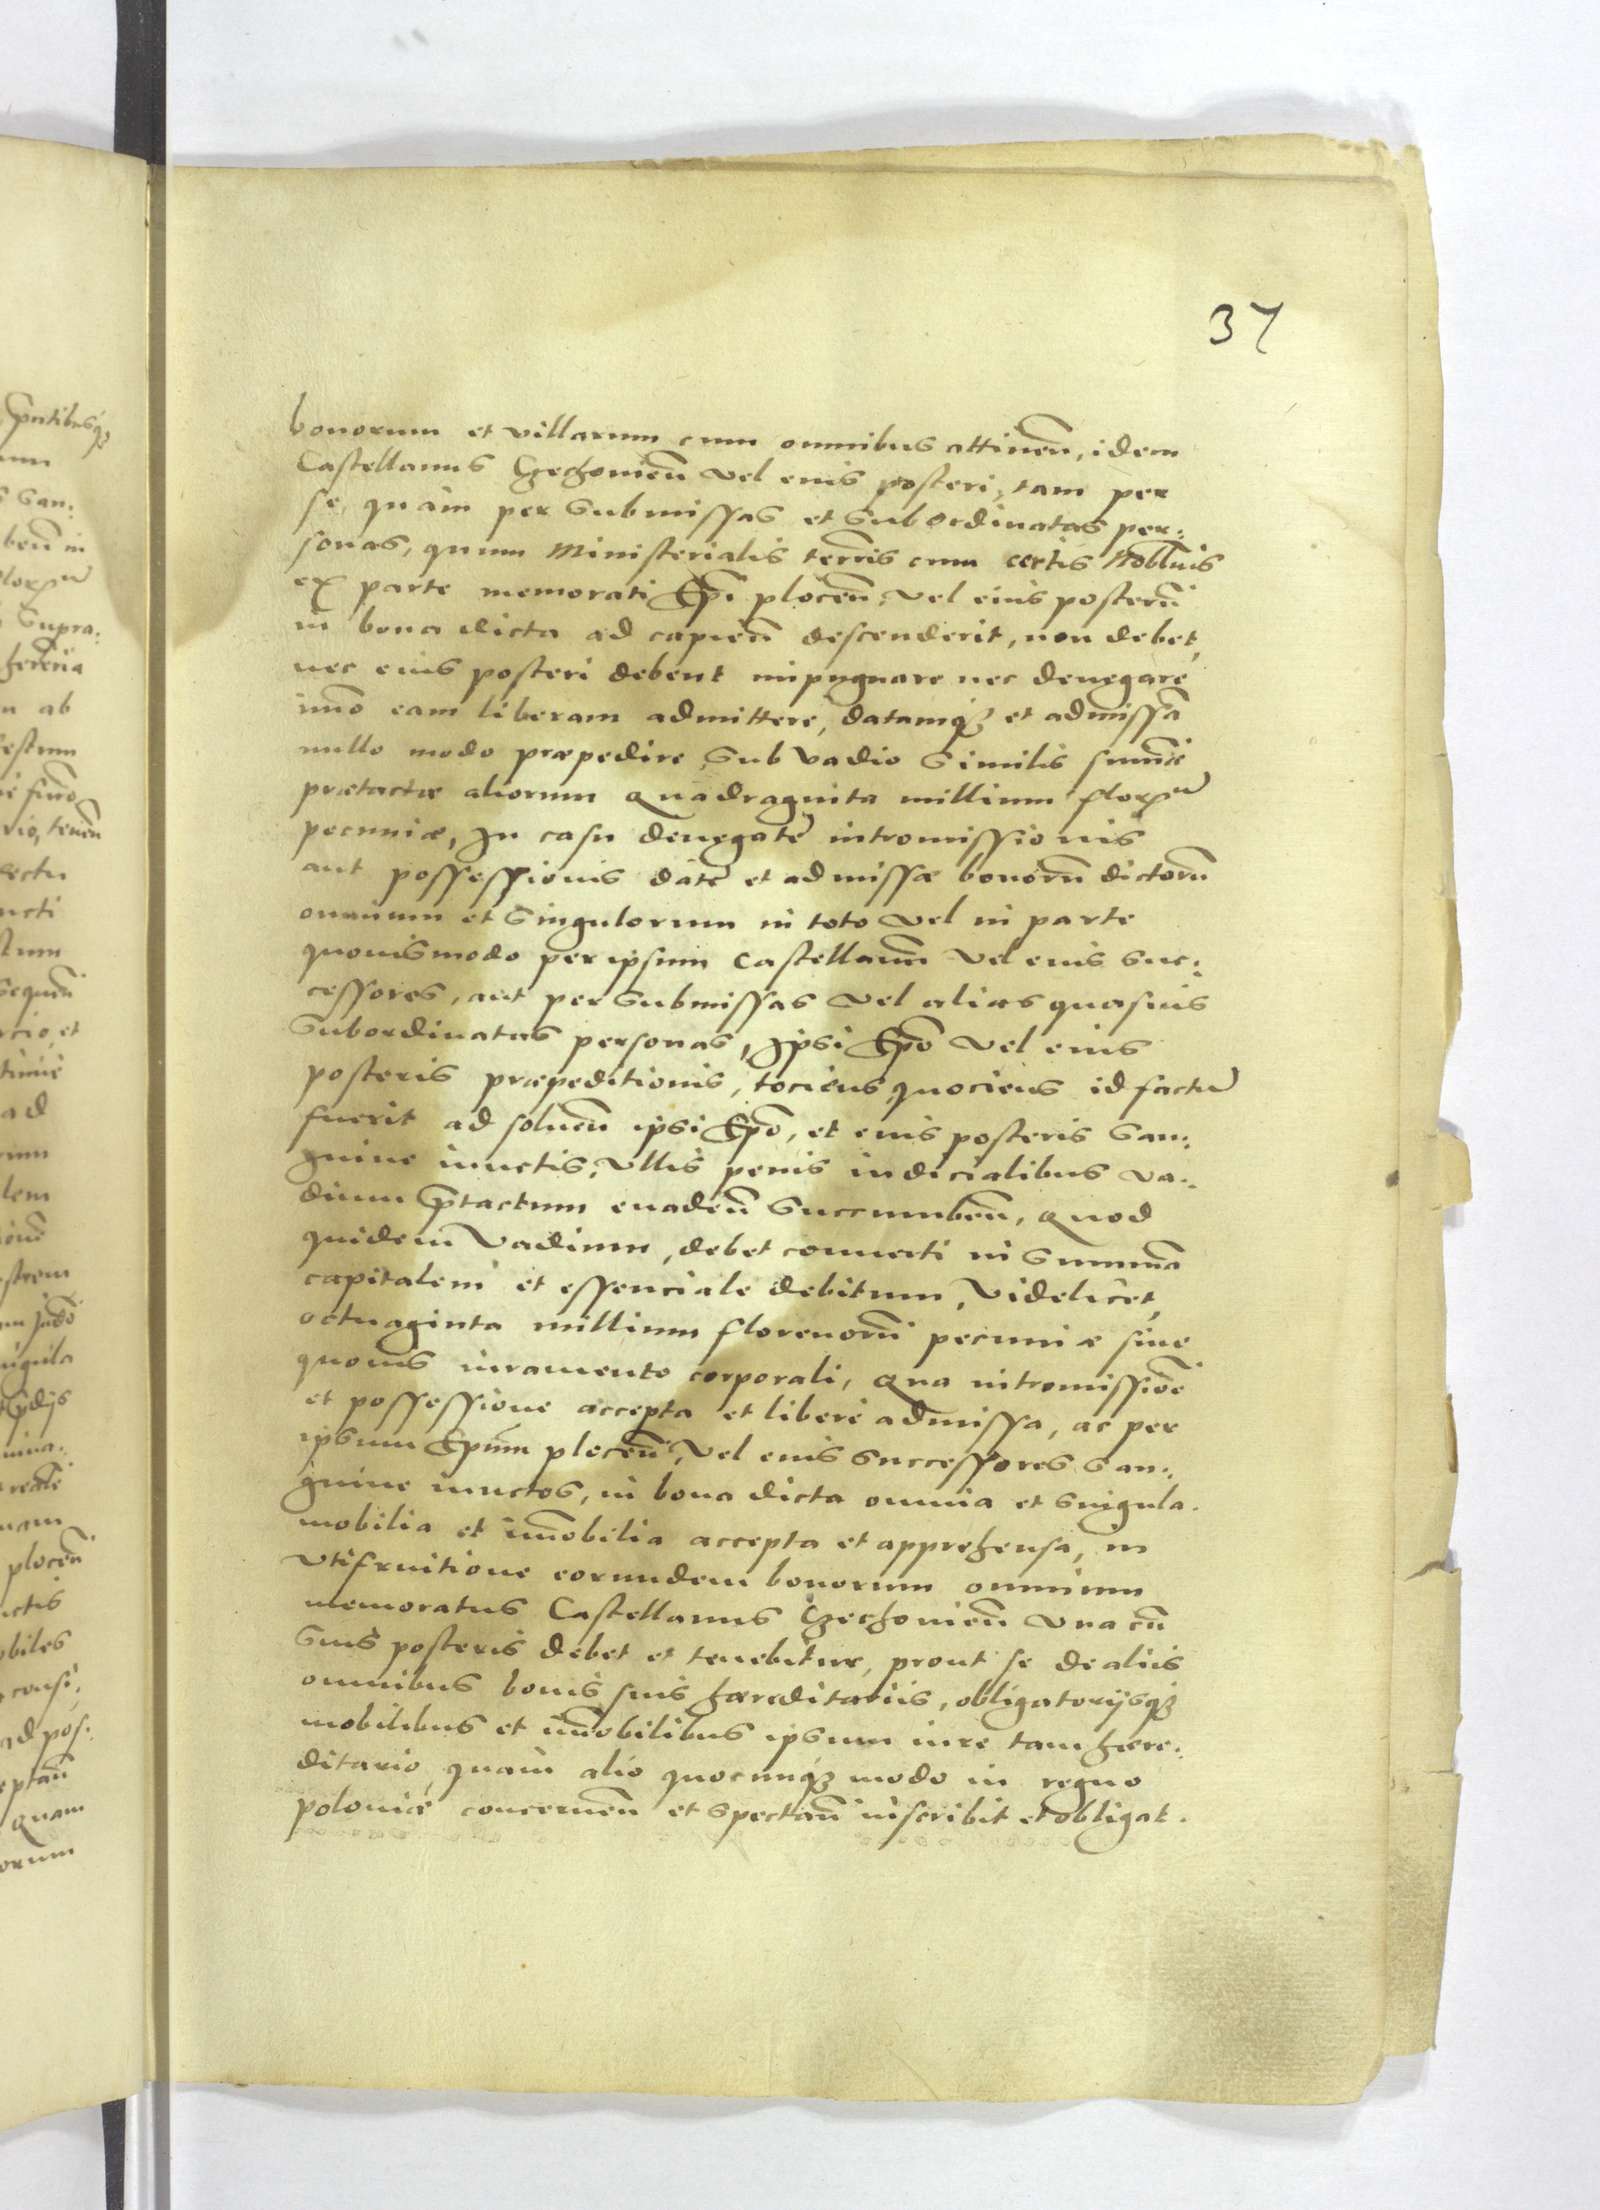 37
bonorum et villarum cum omnibus attinen̄, idem
Castellanus Czechovien̄ vel eius posteri, tam per
se, quàm per submissas et subordinatas per:
sonas, quum Ministerialis terr̄is cum certis Nobl̄ius
ex parte memorati Ep̄i plocen̄, vel eius posterū
in bona dicta ad capien̄ descenderit, non debet,
nec eius posteri debent impugnare nec denegare
im̄o eam liberam admittere, datamq₃ et admissā
nullo modo præpedire sub vadio similis sum̄æ
prætactæ aliorum Quadraginta millium flor
pecuniæ, In casu denegatę intromissionis
aut possessionis datę et admissæ bonorū dictorū
omnium et singulorum in toto vel in parte
quouismodo per ipsum Castellanū vel eius suc:
cessores, aut per submissas vel alias quasuis
subordinatas personas, Ipsi Ep̄o vel eius
posteris præpeditionis, tociens quociens id factū
fuerit ad soluen̄ ipsi Ep̄o, et eius posteris san:
guine iunctis, ullis penis iudicialibus va:
dium p̄tactum euaden̄ succumben̄, Quod
quidem Vadium, debet conuerti in summā
capitalem et essenciale debitum, Videlicet,
octuaginta millium florenorū pecuniæ sine
quouis iuramento corporali, Qua intromissiōe
et possessione accepta et liberè admissa, ac per
ipsum Ep̄um plocen̄, vel eius successores san:
guine iunctos, in bona dicta omnia et singula
mobilia et im̄obilia accepta et apprehensa, in
Utifruitione eorundem bonorum omnium
memoratus Castellanus Czechovien̄ una cū
suis posteris debet et tenebitur, prout se de aliis
omnibus bonis suis hæreditariis, obligatorijsq₃
mobilibus et im̄obilibus ipsum iure tam hære:
ditario, quàm alio quocunq₃ modo in regno
poloniæ concernen̄ et spectan̄ inscribit et obligat.